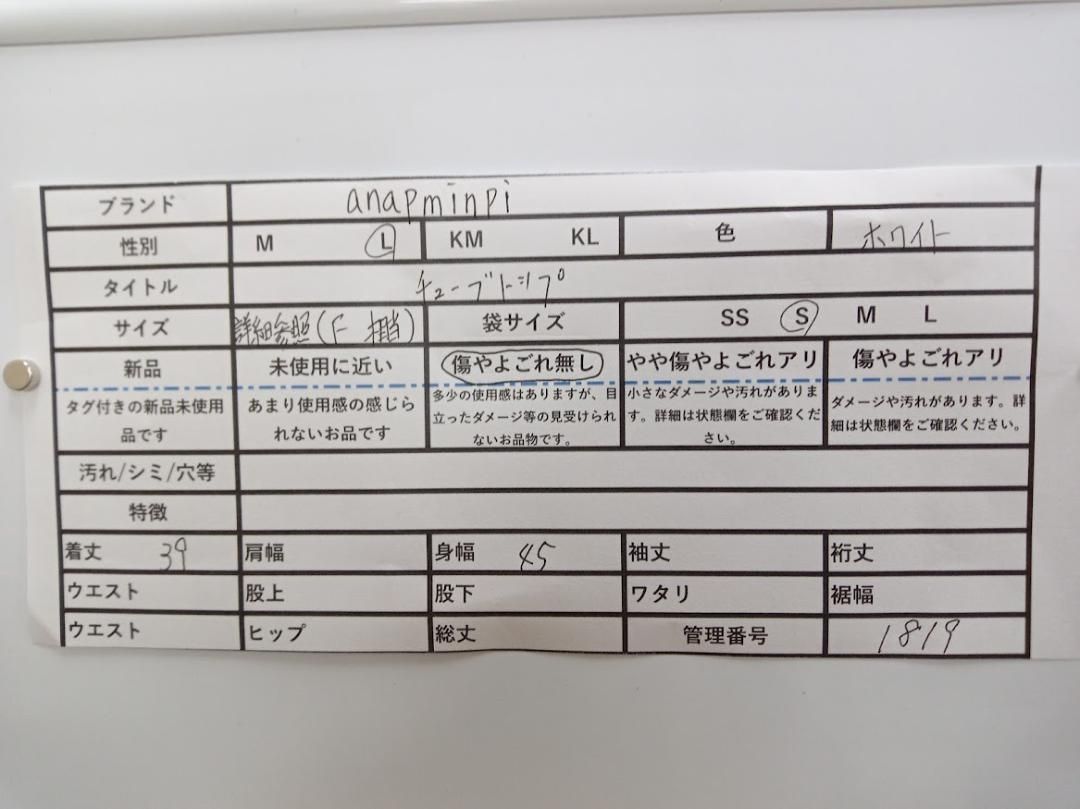 ブランド anapminpi
性別 M L KM KL 色 ホワイト
タイトル チューブトップ
サイズ 詳細参照(F 相当) 袋サイズ SS S M L
新品 未使用に近い 傷やよごれ無し やや傷やよごれアリ 傷やよごれアリ
タグ付きの新品未使用
品です
あまり使用感の感じら
れないお品です
多少の使用感はありますが、目
立ったダメージ等の見受けられ
ないお品物です。
小さなダメージや汚れがありま
す。詳細は状態欄をご確認くだ
さい。
ダメージや汚れがあります。詳
細は状態欄をご確認ください。
汚れ/シミ/穴等
特徴
着丈 39 肩幅 身幅 45 袖丈 裄丈
ウエスト 股上 股下 ワタリ 裾幅
ウエスト ヒップ 総丈 管理番号 1819